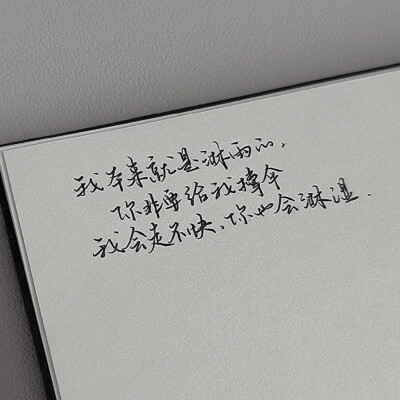 我本来就是淋雨的,
你非要给我撑伞
我会走不快、你也会淋湿.